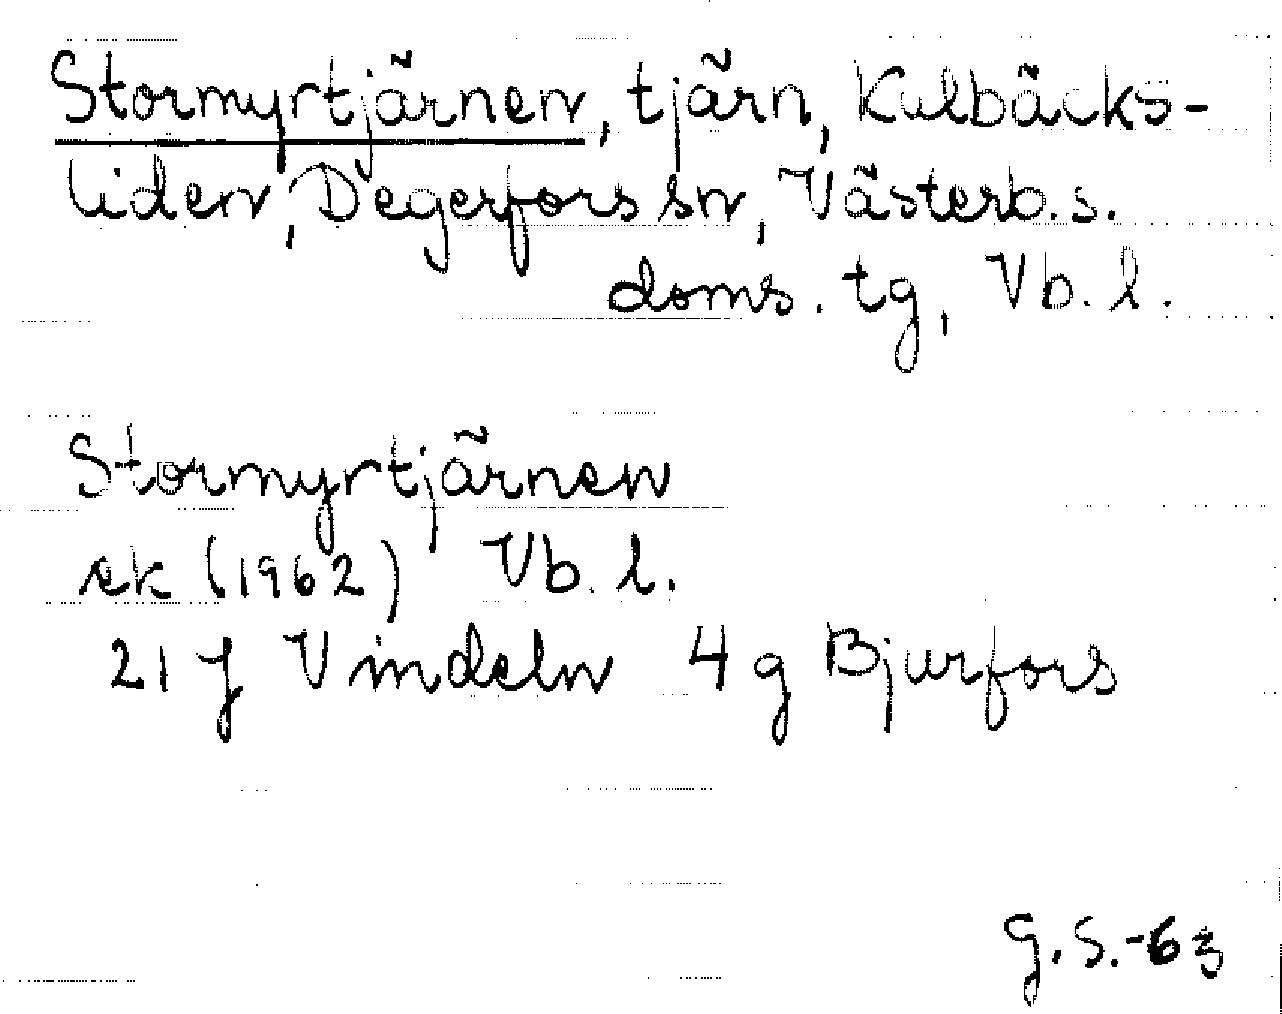 Stormyrtjärnen, tjärn, Kulbäcks-
liden, Degerfors sn, Västerb. s.
doms. tg, Vb. l.
Stormyrtjärnen
ek (1962) Vb. l.
21 J Vindeln 4 g Bjurfors
G.S.-63